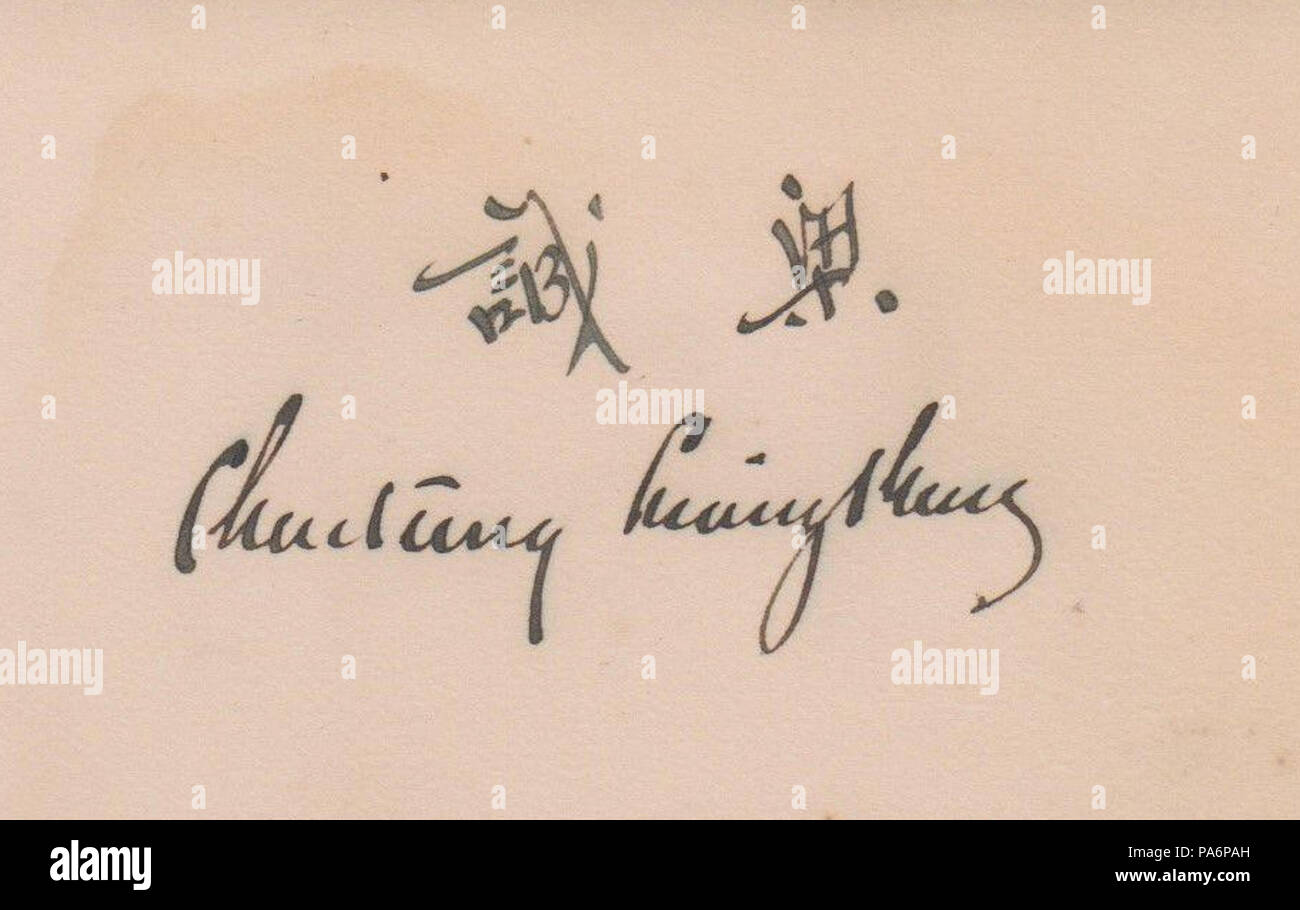 梁誠
Chentung Liang Cheng
alamy
alamy
alamy
alamy
alamy
alamy
Image ID: PA6PAH
www.alamy.com